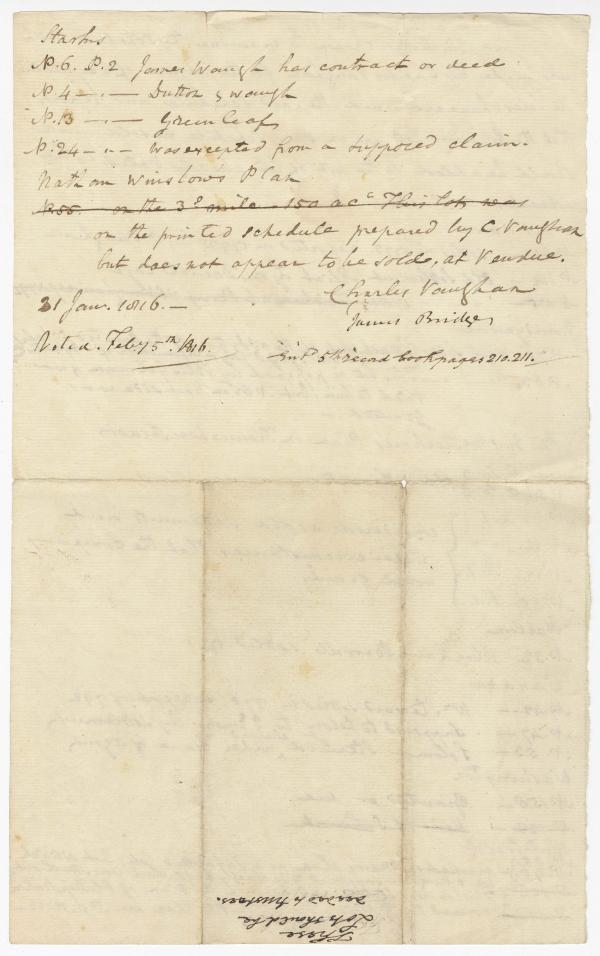 Starks
No. 6. P. 2 James Waugh has contract or deed
No. 4 – . — Dutton & Waugh
No. 13 – . — Greenleaf
No. 24 – . – was excepted from a supposed claim.
Nathan Winslow's Plan
No. 55. on the 3d mile - 150 acs This lot was
on the printed schedule prepared by C. Vaughan
but does not appear to be sold, at Vendue.
Charles Vaughan
James Bridge
31 Jan. 1816. –
Voted. Feby 5th 1816.
5th record book pages 210. 211.
These
Lots should be
to trustees.